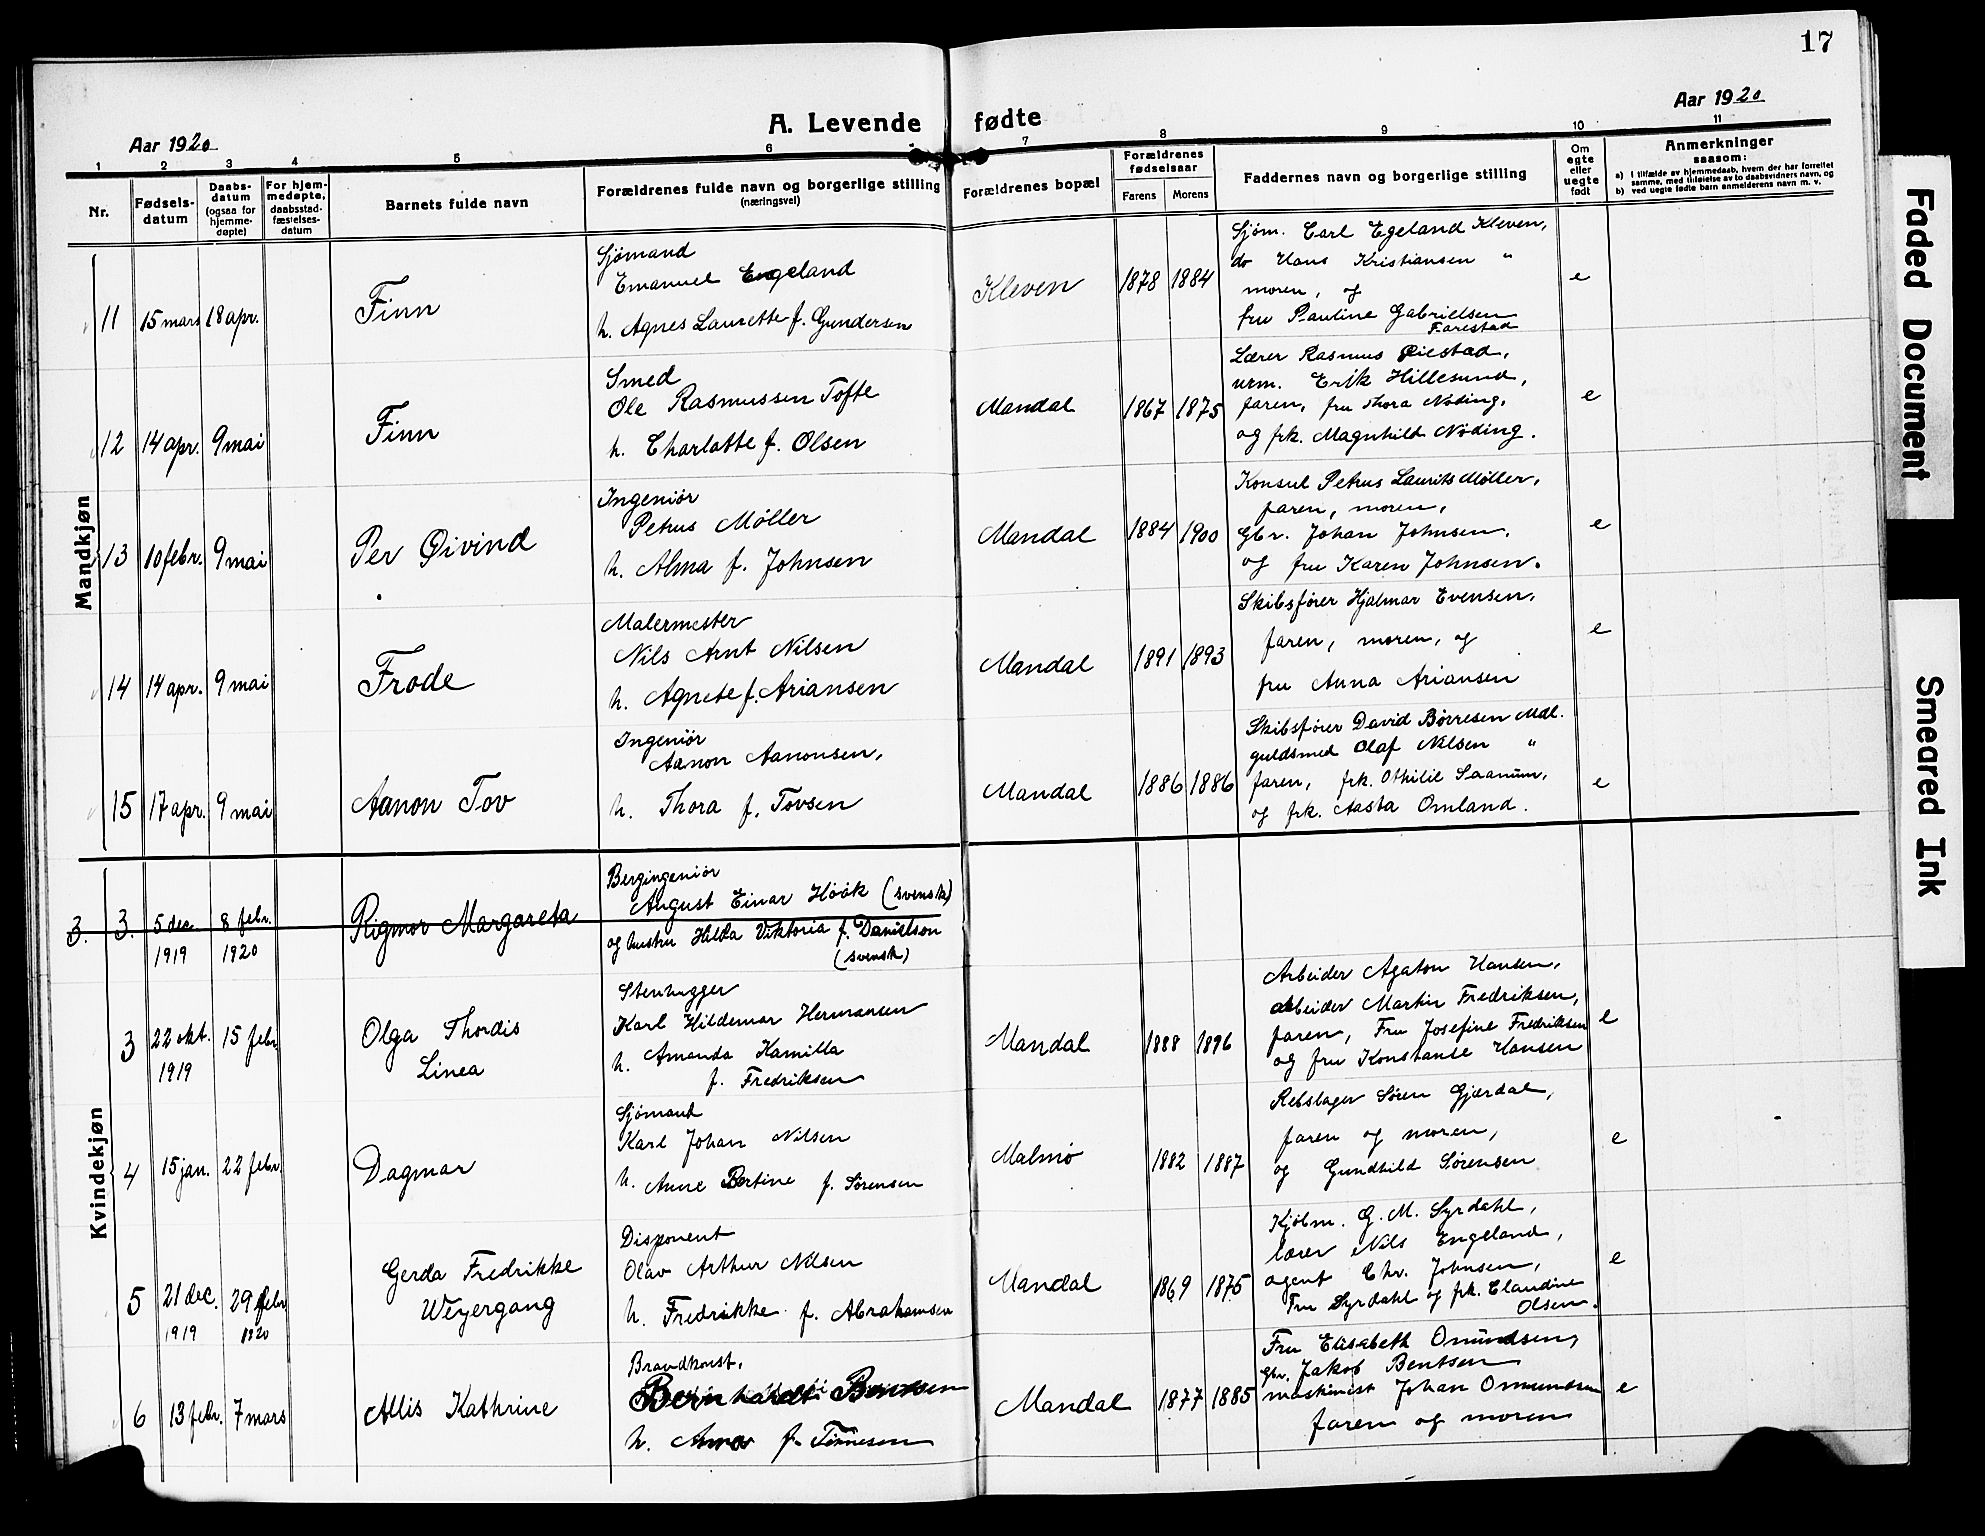 17
Aar 1920
A. Levende fødte
Aar 1920
1 2 3 4 5 6 7 8 9 10 11
Nr.
Fødsels-
datum
Daabs-
datum
(ogsaa for
hjemme-
døpte)
For hjem-
medøpte,
daabsstad-
fæstelses-
datum
Barnets fulde navn
Forældrenes fulde navn og borgerlige stilling
(næringsvei)
Forældrenes bopæl
Forældrenes
fødselsaar
Farens Morens
Faddernes navn og borgerlige stilling
Om
egte
eller
uegte
født
Anmerkninger
saasom:
a) i tilfælde av hjemmedaab, hvem der har forrettet
samme, med tilføielse av to daabsvidners navn, og
b) ved uegte fødte barn anmelderens navn m. v.
Mandkjøn
11 15 mars 18 apr.
Finn
Sjømand
Emanuel Engeland
h. Agnes Laurette f. Gundersen
Kleven
1878 1884
Sjøm. Carl Egeland Kleven,
do Hans Kristiansen "
moren, og
fru Pauline Gabrielsen
Farestad
e
12 14 apr. 9 mai
Finn
Smed
Ole Rasmussen Tofte
h. Charlotte f. Olsen
Mandal
1867 1875
Lærer Rasmus Øiestad,
urm. Erik Hillesund,
faren, fru Thora Nøding,
og frk. Magnhild Nøding.
e
13 10 febr. 9 mai
Per Øivind
Ingeniør
Petrus Møller
h. Alma f. Johnsen
Mandal
1884 1900
Konsul Petrus Laurits Møller,
faren, moren,
Gbr. Johan Johnsen.
og fru Karen Johnsen.
e
14 14 apr. 9 mai
Frode
Malermester
Nils Arnt Nilsen
h. Agnete f. Ariansen
Mandal
1891 1893
Skibsfører Hjalmar Evensen,
faren, moren, og
fru Anna Ariansen
e
15 17 apr. 9 mai
Aanon Tov
Ingeniør
Aanon Aanonsen,
h. Thora f. Tovsen
Mandal
1886 1886
Skibsfører David Børresen Mdl.
guldsmed Olaf Nilsen "
faren, frk. Othilie Saanum,
og frk. Aasta Omland.
e
Kvindekjøn
3. 3. 5 dec. 8 febr.
1919 1920
Rigmor Margareta
Bergingeniør
August Einar Höök (svensk)
og hustru Hilda Viktoria f. Danielson
(svensk)
3 22 okt. 15 febr.
1919
Olga Thordis
Linea
Stenhugger
Karl Hildemar Hermansen
h. Amanda Kamilla
f. Fredriksen
Mandal
1888 1896
Arbeider Agaton Hansen,
arbeider Martin Fredriksen,
faren, Fru Josefine Fredriksen
og fru Konstanse Hansen
e
4 15 jan. 22 febr.
Dagmar
Sjømand
Karl Johan Nilsen
h. Anne Bertine f. Sørensen
Malmø
1882 1887
Rebslager Søren Gjærdal,
faren og moren,
og Gundhild Sørensen
e
5 21 dec. 29 febr
1919 1920
Gerda Fredrikke
Weyergang
Disponent
Olav Arthur Nilsen
h. Fredrikke f. Abrahamsen
Mandal
1869 1875
Kjøbm. G. M. Syrdahl,
lærer Nils Engeland,
agent Chr. Johnsen,
Fru Syrdahl og frk. Claudine
Olsen.
e
6 13 febr. 7 mars
Allis Kathrine
Brandkonst.
Bernhardt Bentsen
h. Anna f. Tønnesen
Mandal
1877 1885
Fru Elisabeth Omundsen,
Gbr. Jakob Bentsen
maskinist Johan Omundsen
faren og moren
e
Faded Document
Smeared Ink